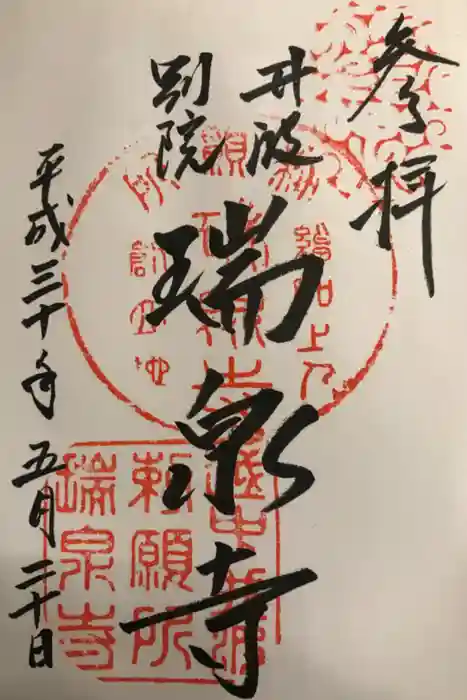 参拝
井波
別院
瑞泉寺
平成三十年五月二十日
綽如上人
勅願所
瑞泉寺